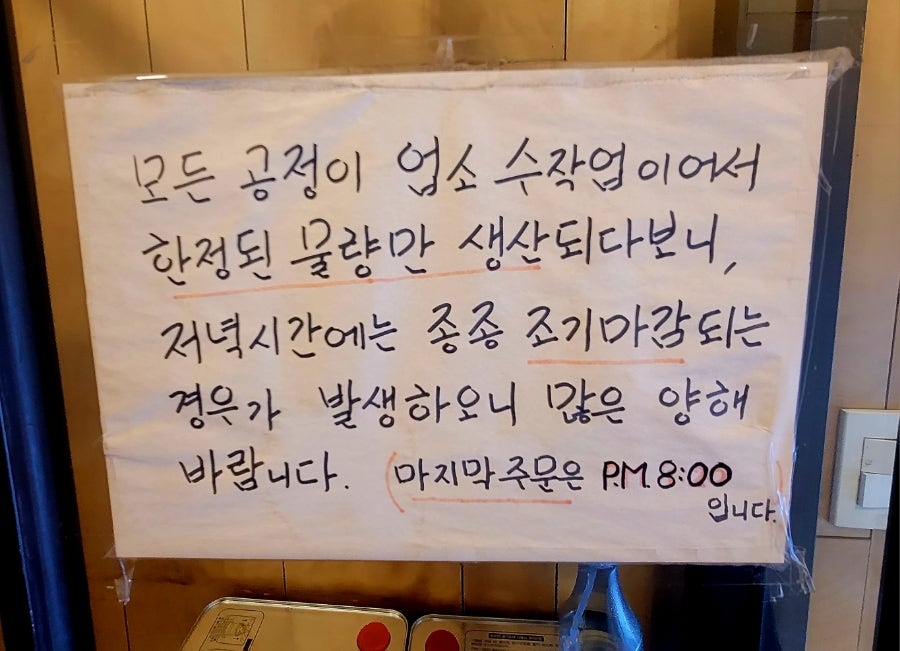 모든 공정이 업소 수작업이어서
한정된 물량만 생산되다보니,
저녁시간에는 종종 조기마감되는
경우가 발생하오니 많은 양해
바랍니다. (마지막주문은 P.M. 8:00
입니다.)